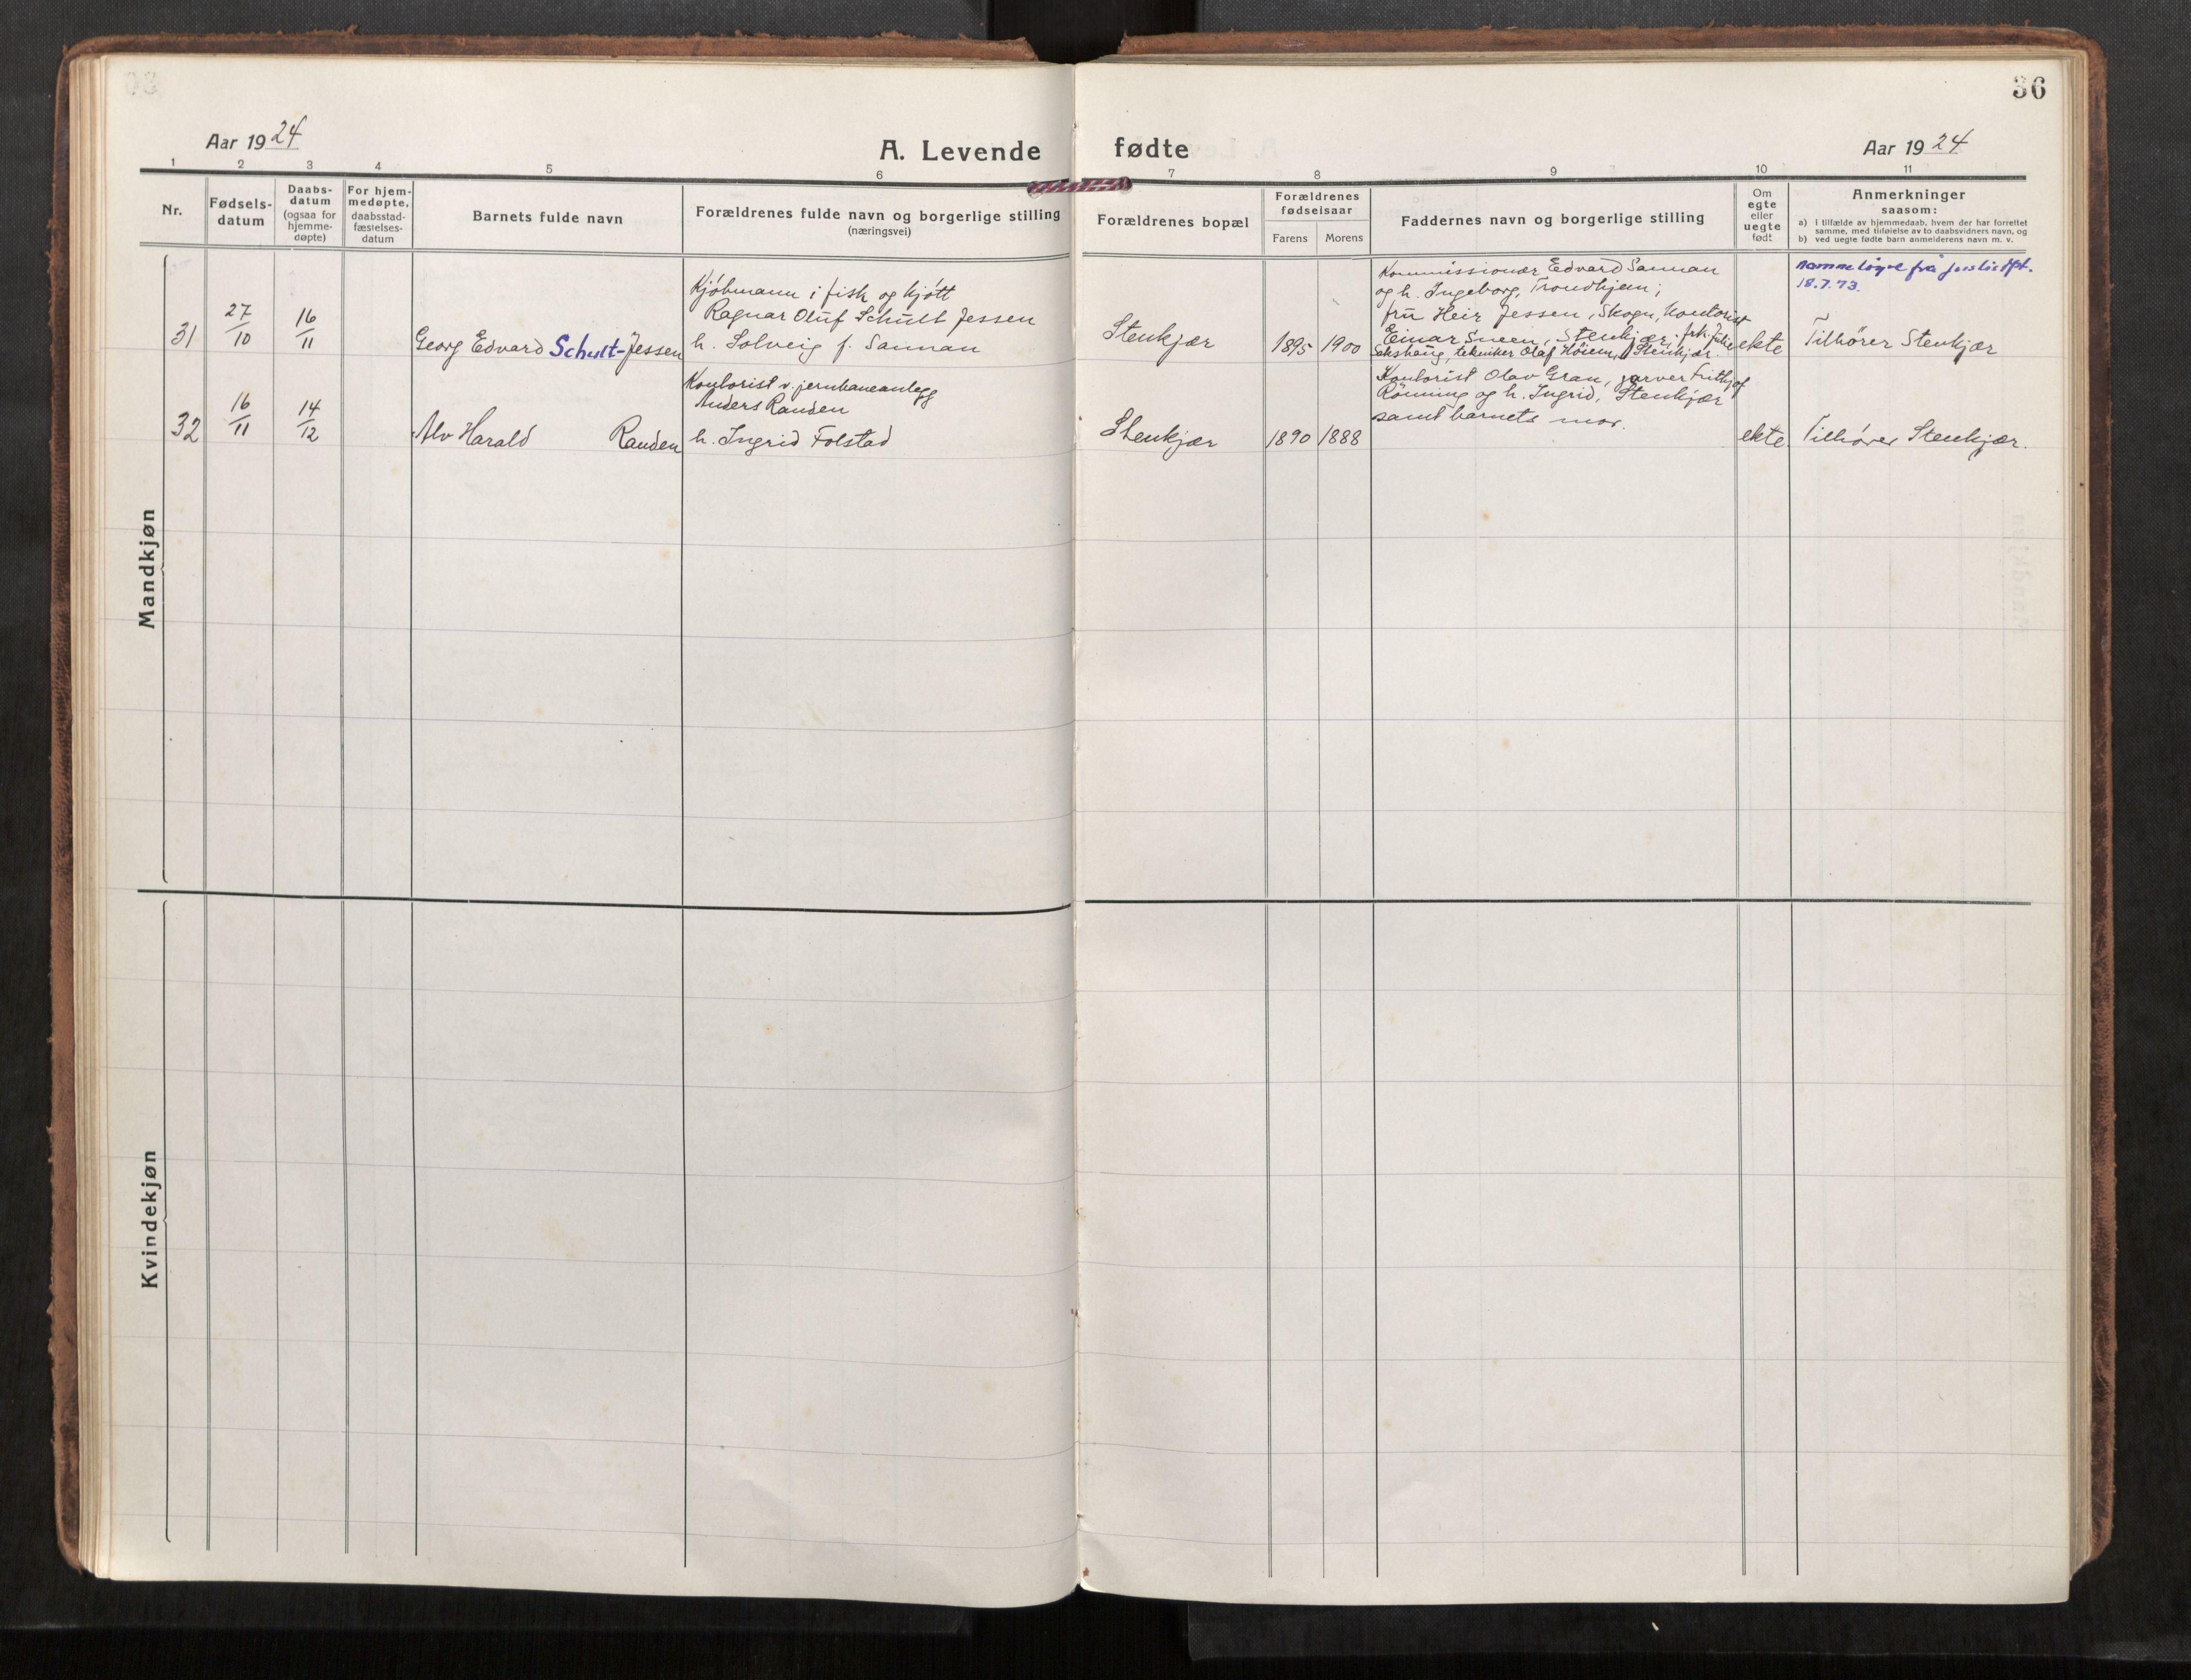 36
Aar 1924
A. Levende fødte
Aar 1924
1 2 3 4 5 6 7 8 9 10 11
Nr.
Fødsels-
datum
Daabs-
datum
(ogsaa for
hjemme-
døpte)
For hjem-
medøpte,
daabsstad-
fæstelses-
datum
Barnets fulde navn
Forældrenes fulde navn og borgerlige stilling
(næringsvei)
Forældrenes bopæl
Forældrenes
fødselsaar
Farens Morens
Faddernes navn og borgerlige stilling
Om
egte
eller
uegte
født
Anmerkninger
saasom:
a) i tilfælde av hjemmedaab, hvem der har forrettet
samme, med tilføielse av to daabsvidners navn, og
b) ved uegte fødte barn anmelderens navn m. v.
Mandkjøn
31
27/10
16/11
Georg Edvard Schult-Jessen
Kjøbmann i fisk og kjøtt
Ragnar Oluf Schult Jessen
h. Solveig f. Sannan
Stenkjær
1895 1900
Kommissionær Edvard Sannan
og h. Ingeborg, Trondhjem;
fru Heir Jessen, Skogn, Kontorist
Einar Sneen, Stenkjær, frk. Julie
tekniker Olaf Höiem, Stenkjær.
ekte
Namneløyve frå justisdpt.
18.7.73.
Tilhører Stenkjær
32
16/11
14/12
Alv Harald Randen
Kontorist v. jernbaneanlegg
Anders Randen
h. Ingrid Folstad
Stenkjær
1890 1888
Kontorist Olav Gran, garver Frithjof
Rönning og h. Ingrid, Stenkjær
samt barnets mor.
ekte.
Tilhører Stenkjær.
Kvindekjøn